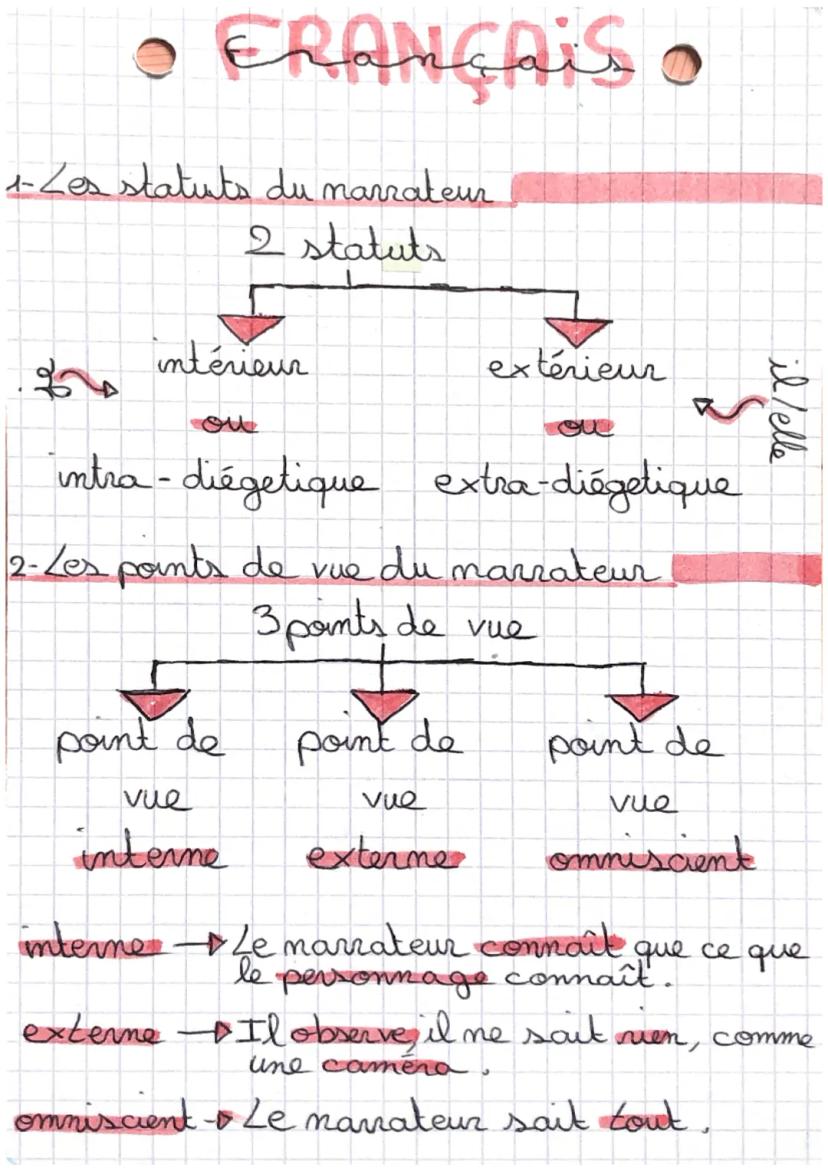 FRANÇAiS
Français
1-Les statuts du narrateur
2 statuts
intérieur extérieur
il/elle
ou ou
intra-diégetique extra-diégetique
2-Les points de vue du narrateur
3 points de vue
point de point de point de
vue vue vue
interne externe omniscient
interne → Le narrateur connaît que ce que
le personnage connaît.
externe → Il observe, il ne sait rien, comme
une caméra.
omniscient → Le narrateur sait tout.